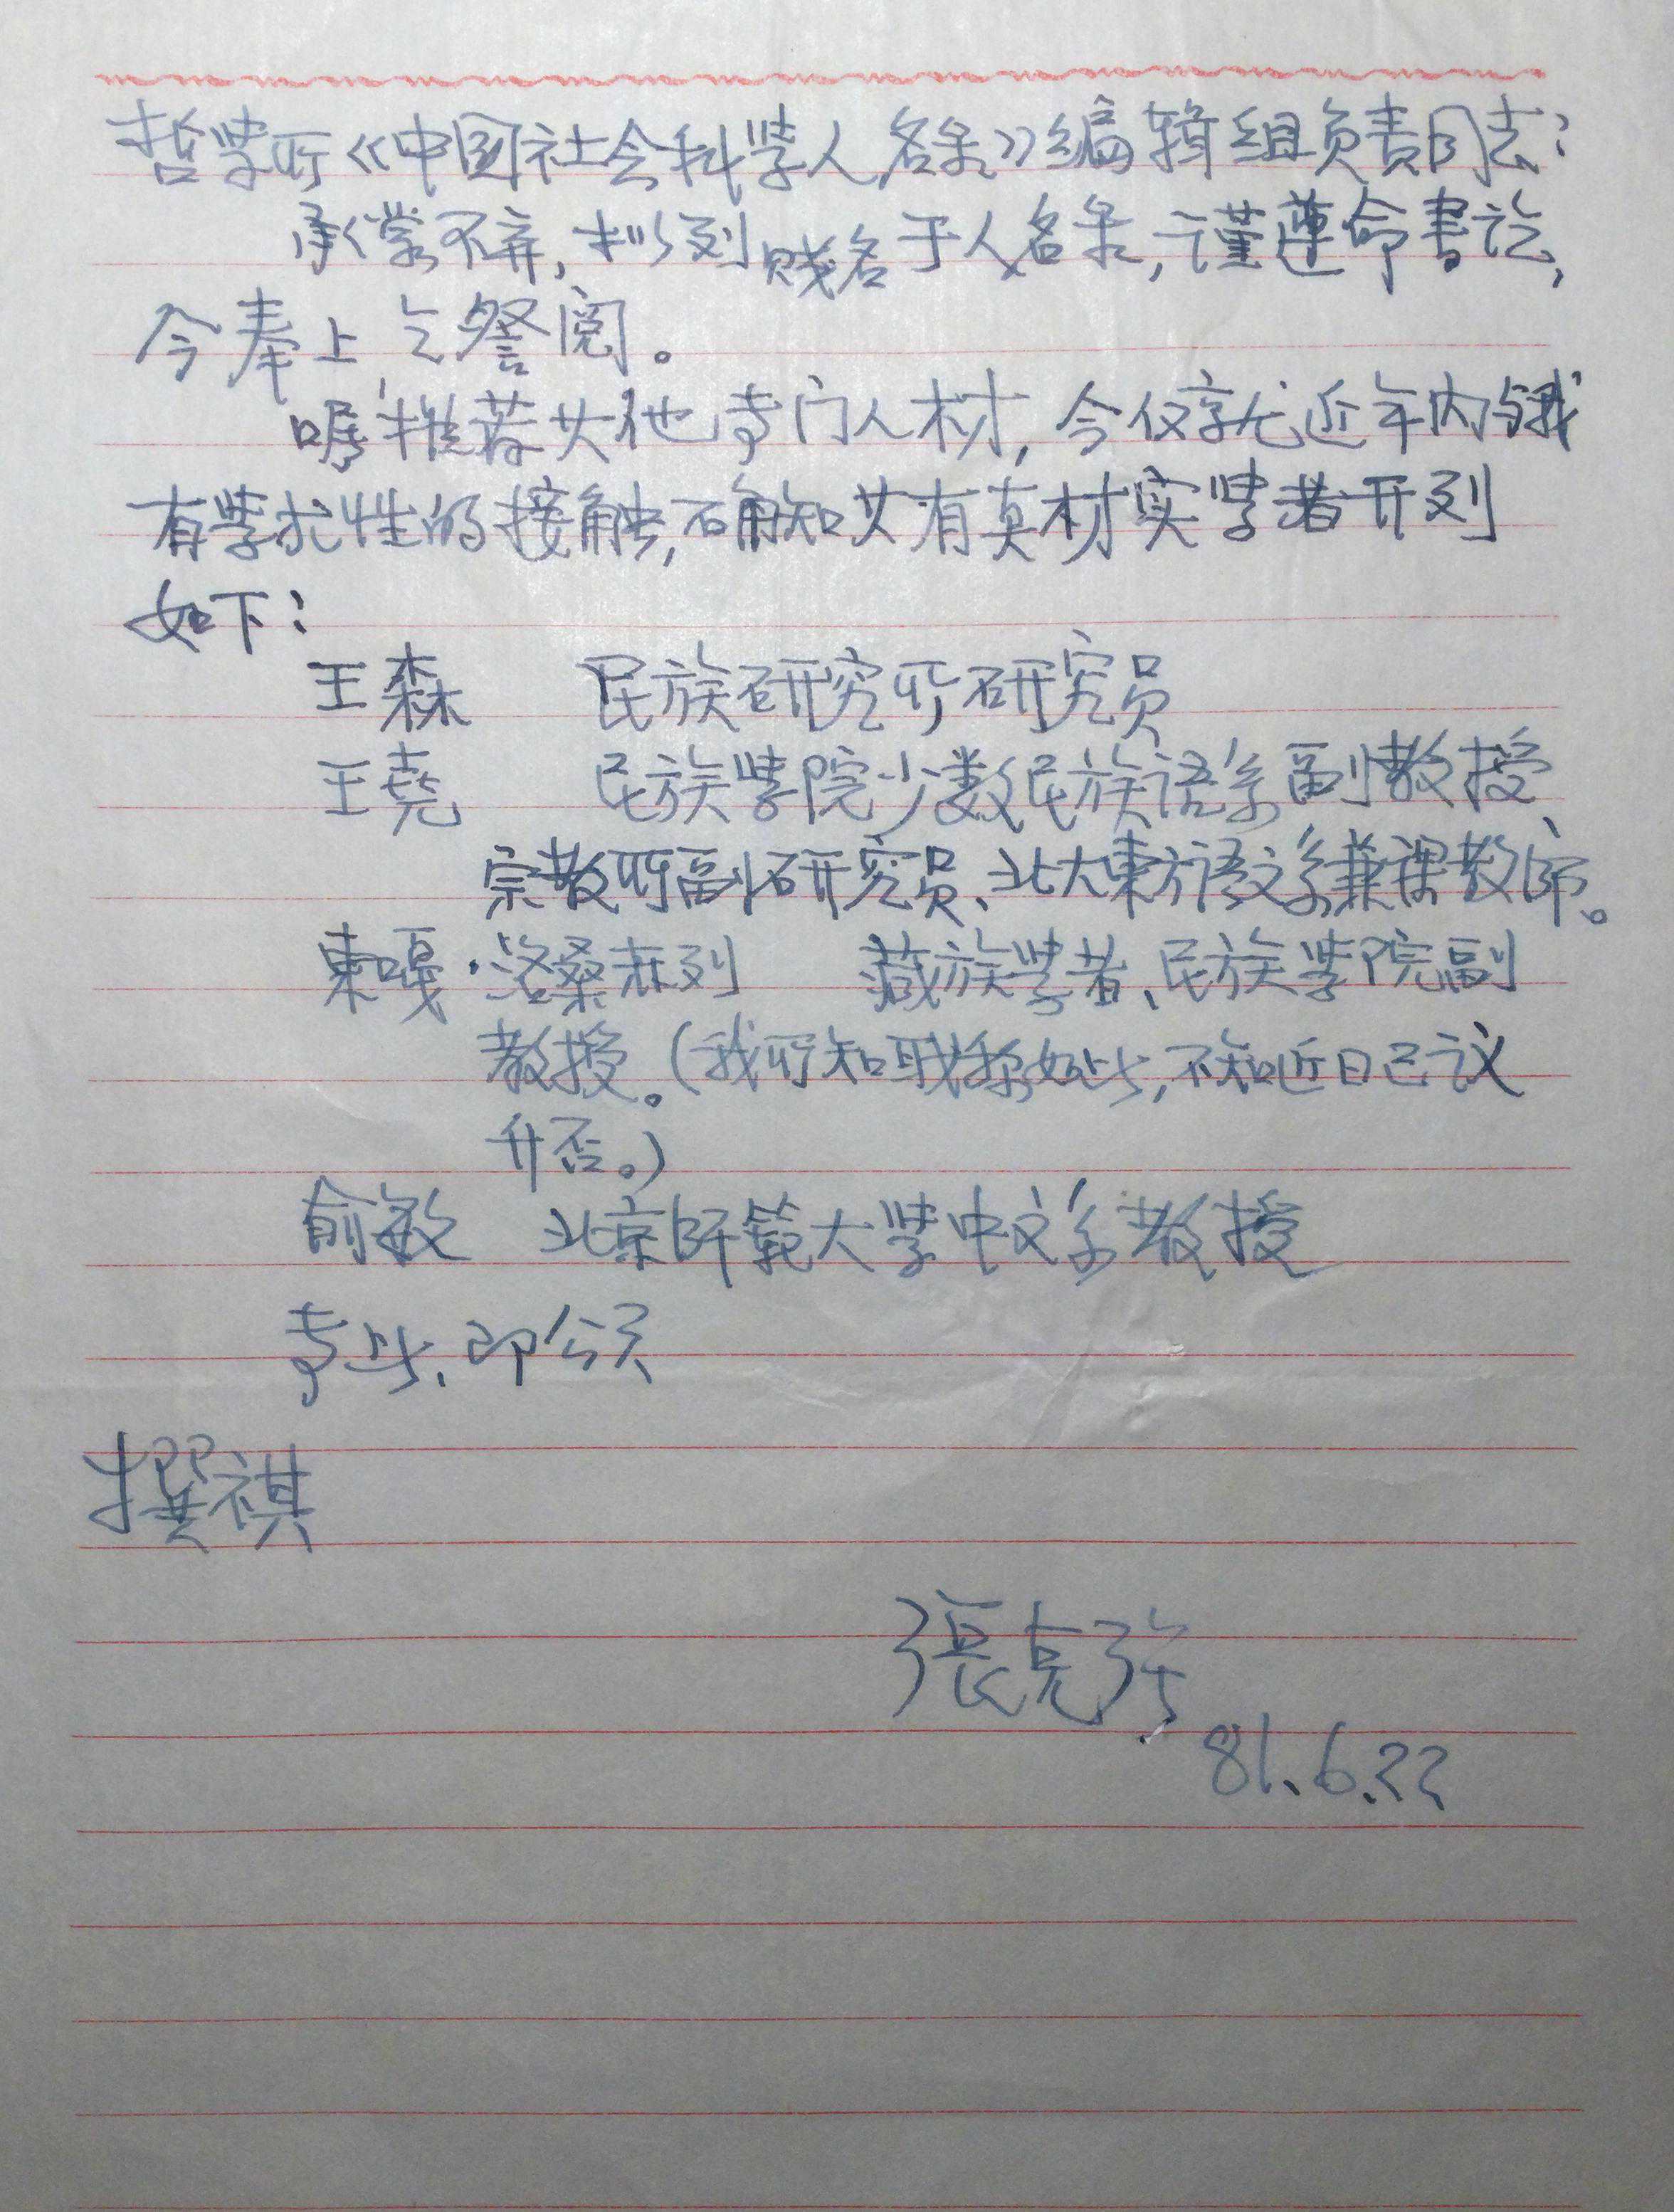 哲學所《中国社会科学人名录》编辑组负责同志：
承蒙不弃，拟列贱名于人名录，谨遵命書讫，
今奉上乞詧阅。
嘱推荐其他专门人材，今仅就近年内与我
有学术性的接触，确知其有真材实学者开列
如下：
王森 民族研究所研究员
王堯 民族学院少数民族语系副教授、
宗教所副研究员、北大東方语文系兼課教师。
東嘎·洛桑赤列 藏族学者、民族学院副
教授。（我所知职称如此，不知近日已议
升否。）
俞敏 北京師範大学中文系教授
专此、即颂
撰祺
張克强
81.6.22